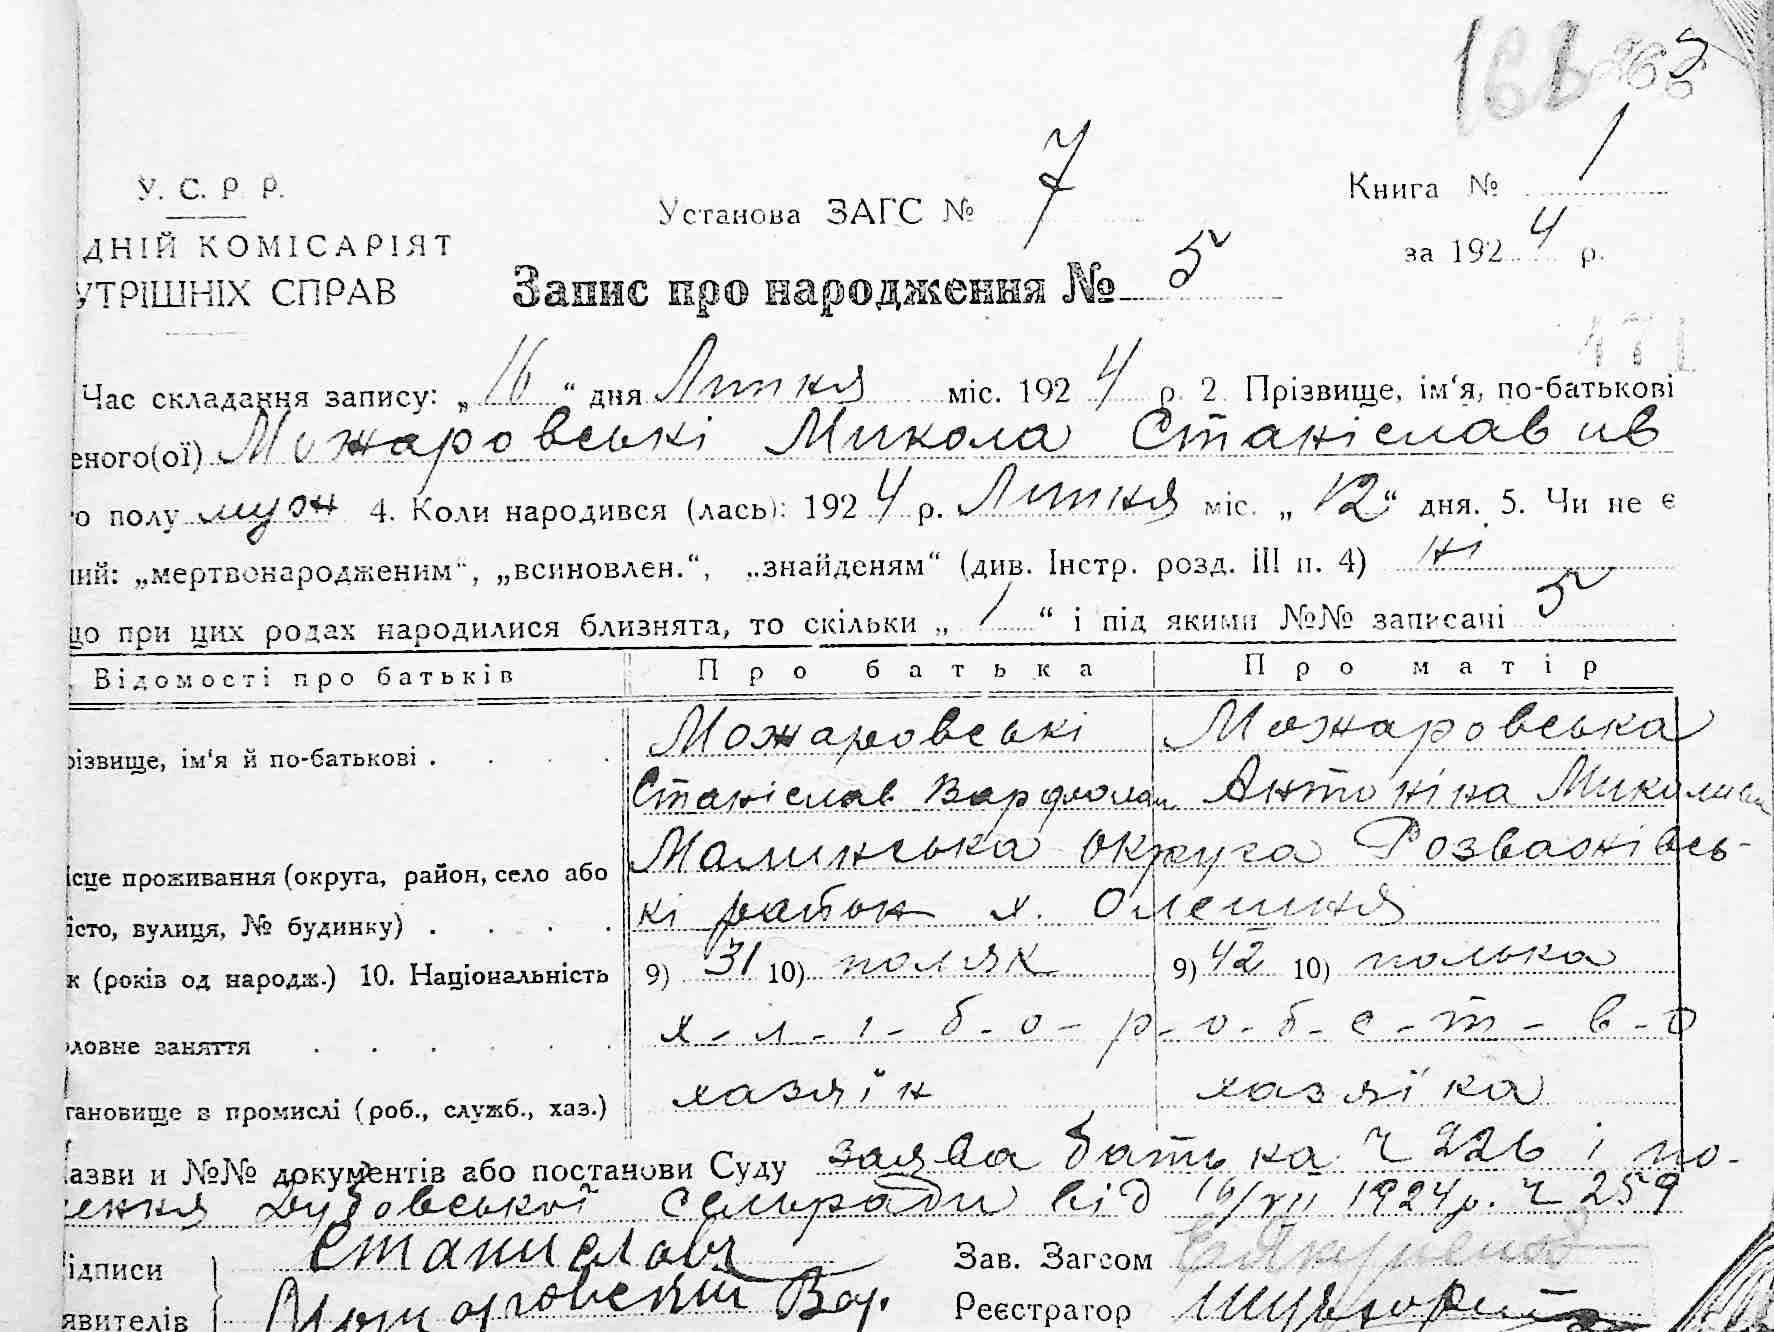 У. С. Р. Р.
Установа ЗАГС № 7
Книга № 1
ДНІЙ КОМІСАРІЯТ
за 1924 р.
УТРІШНІХ СПРАВ
Запис про народження № 5
471
Час складання запису: „16“ дня Липня міс. 1924 р. 2. Прізвище, ім‘я, по-батькові
еного(ої) Можаровські Микола Станіславив
о полу муж 4. Коли народився (лась): 1924 р. Липня міс. „12“ дня. 5. Чи не є
ий: „мертвонародженим“, „всиновлен.“, „знайденям“ (див. Інстр. розд. III п. 4) ні
що при цих родах народилися близнята, то скільки „1“ і під якими №№ записані 5
Відомості про батьків Про батька Про матір
Можаровські Можаровська
різвище, ім‘я й по-батькові .
Станіслав Варфолом Антоніна Миколаив
Малинська округа Розважівсь-
ісце проживання (округа, район, село або
кі район х. Олешня
істо, вулиця, № будинку) .
к (років од народж.) 10. Національність 9) 31 10) поляк 9) 42 10) полька
х-л-і-б-о-р-о-б-с-т-в-о
ловне заняття
хазяїн хазяїка
тановище в промислі (роб., служб., хаз.)
азви и №№ документів або постанови Суду заява батька Ч 226 і по-
Дубовської сельради від 16/VII 1924р. Ч 259
ідписи Станиславъ Зав. Загсом
явителів Можаровский Вар. Реєстратор